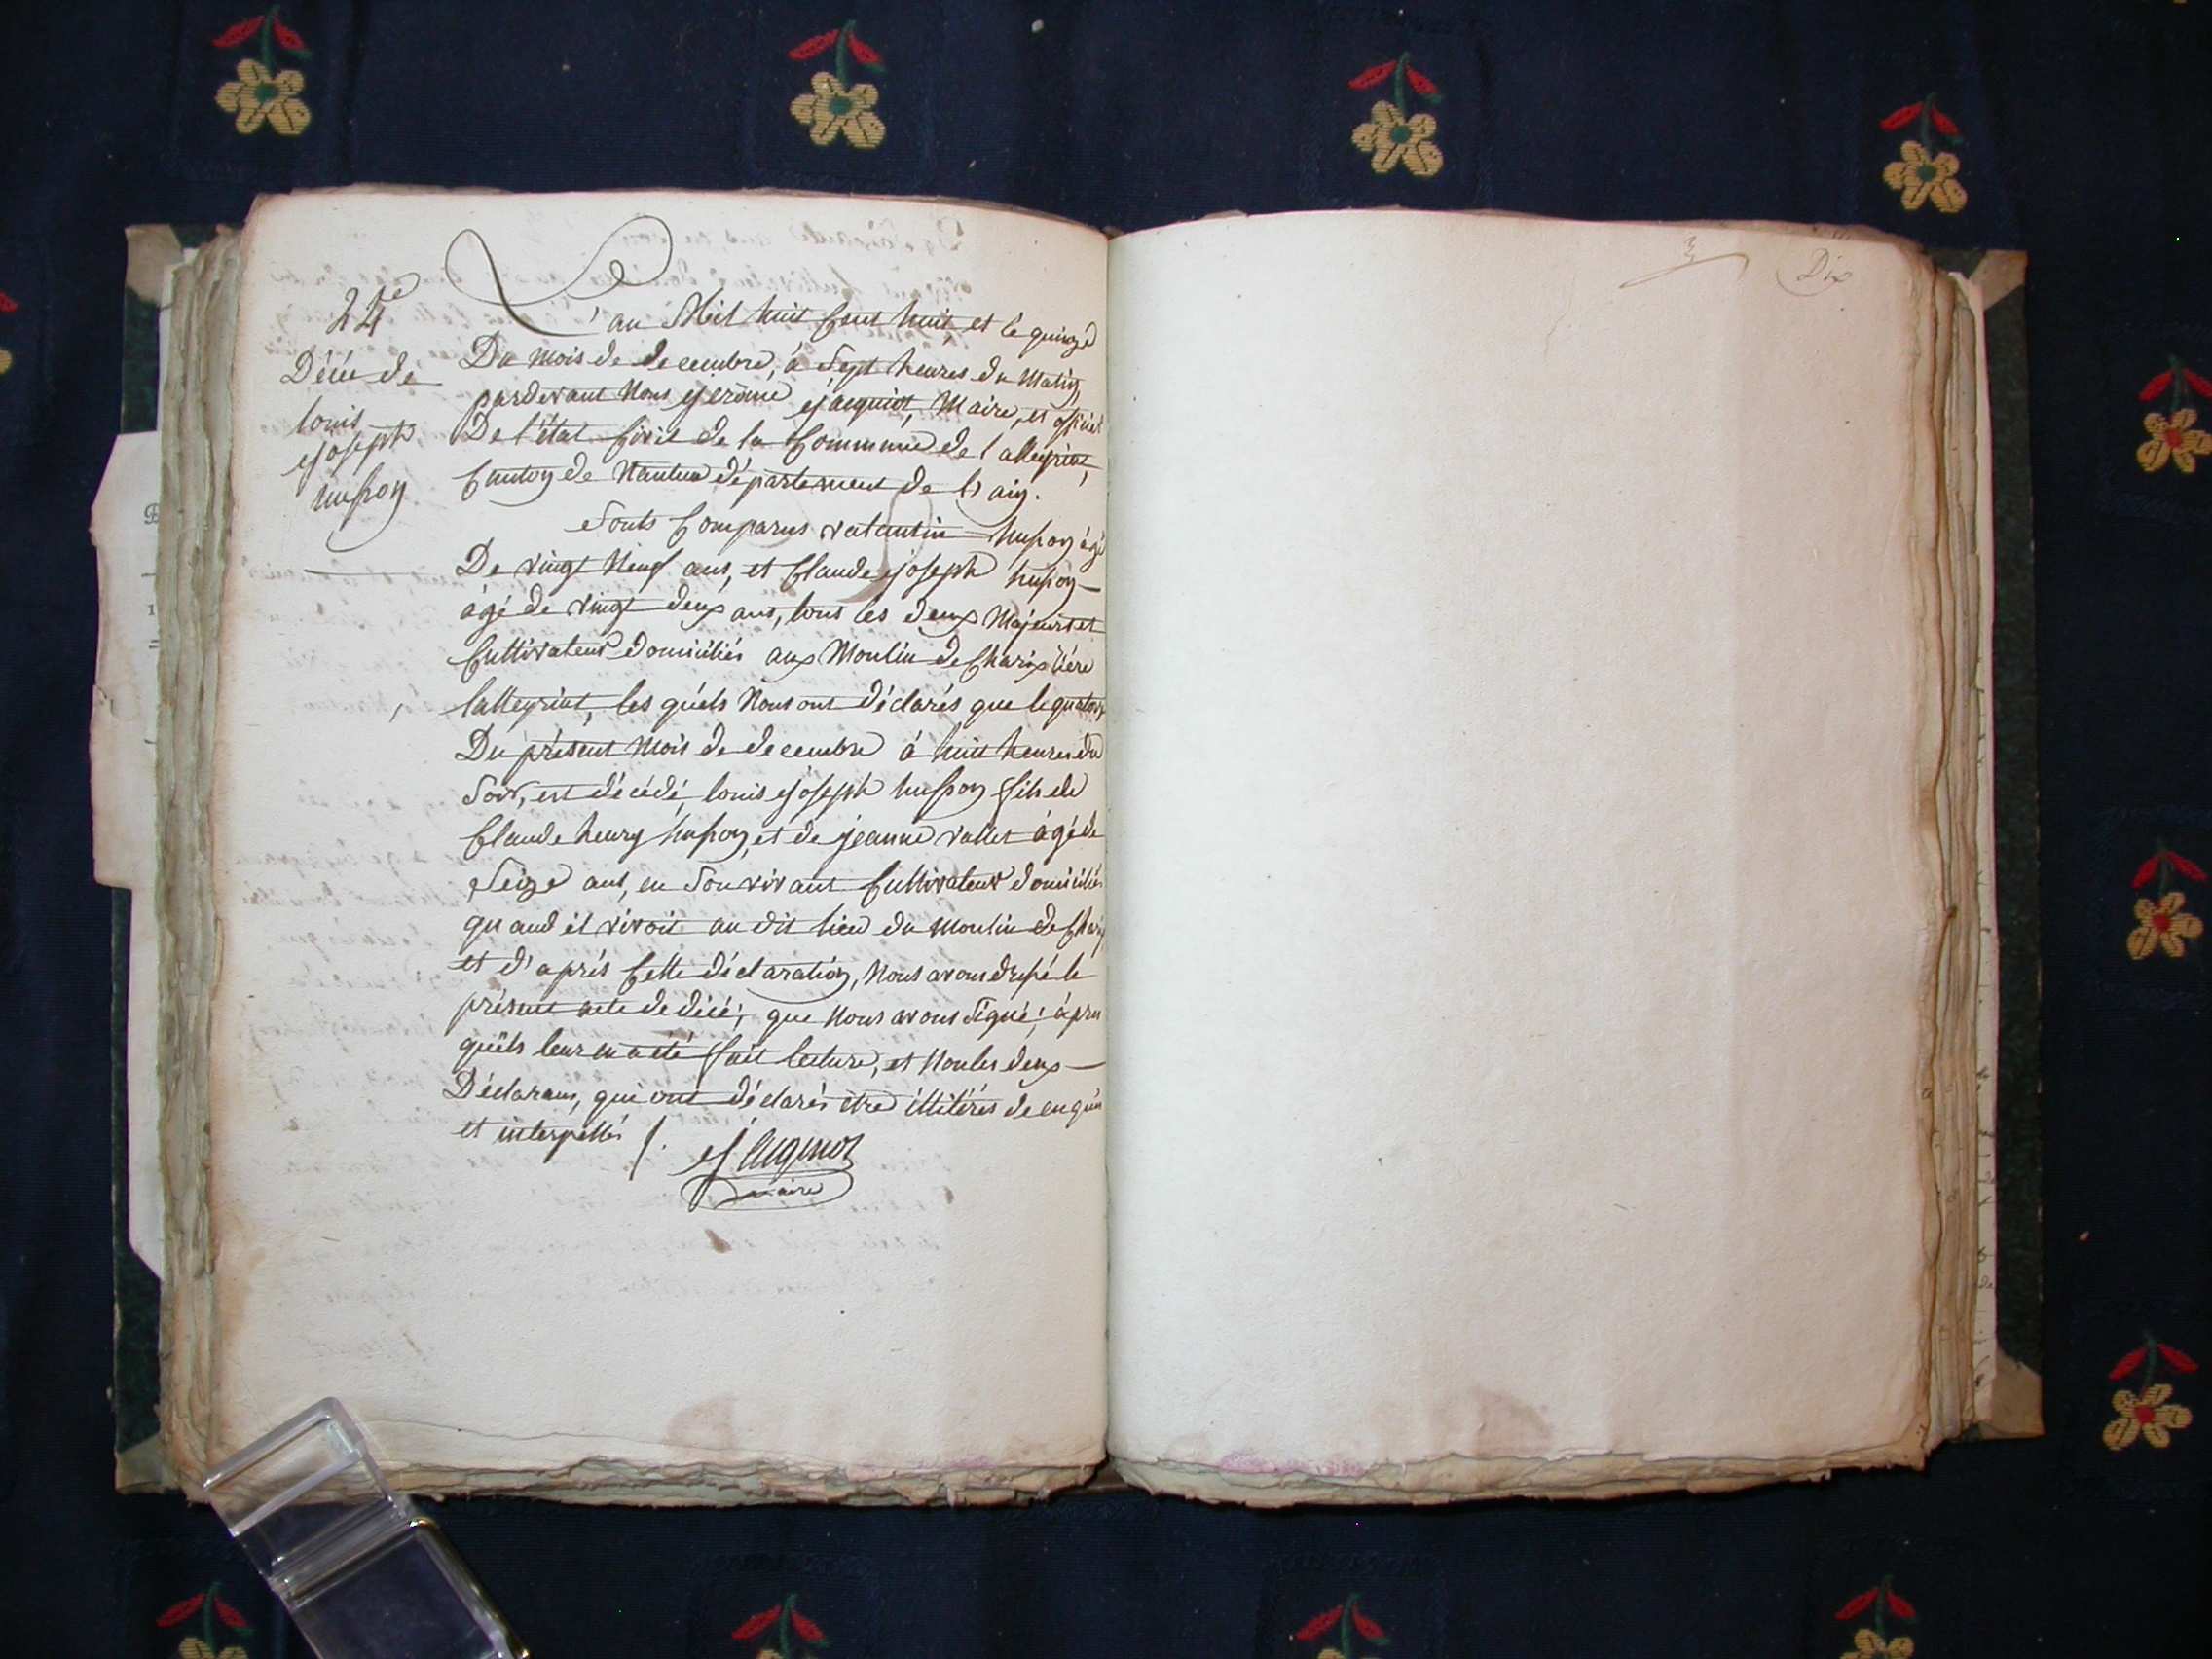 24e
Décé de
louis
joseph
husson
L'an Mil huit Cent huit, et le quinze
Du mois de decembre, à Sept heures du Matin,
pardevant Nous jerôme jacquiot, Maire, et officier
De l'état Civil de la Commune de lalleyriat,
Canton de Nantua département de l'ain.
Sonts Comparus valantin husson âgé
De vingt Neuf ans, et Claude joseph husson
âgé de vingt deux ans, tous les deux Majeurs et
Cultivateur domiciliés aux Moulin de Charix
lalleyriat, les quéls Nous ont déclarés que le quatorze
Du présent Mois de decembre à huit heures du
Soir, est décédé, louis joseph husson fils de
Claude henry husson, et de jeanne vallet âgé de
Seize ans, en Son vivant Cultivateur domicilié
quand il vivoit au dit lieu du Moulin de Charix
et d'aprés Cette déclaration, Nous avons dressé le
présent acte de décé; que Nous avons Signé; àprés
quéls leur en a été fait lecture, et Non les deux
Déclarans, qui ont déclarés être illitérés de
et interpellés
Jacquiot
maire
Dix